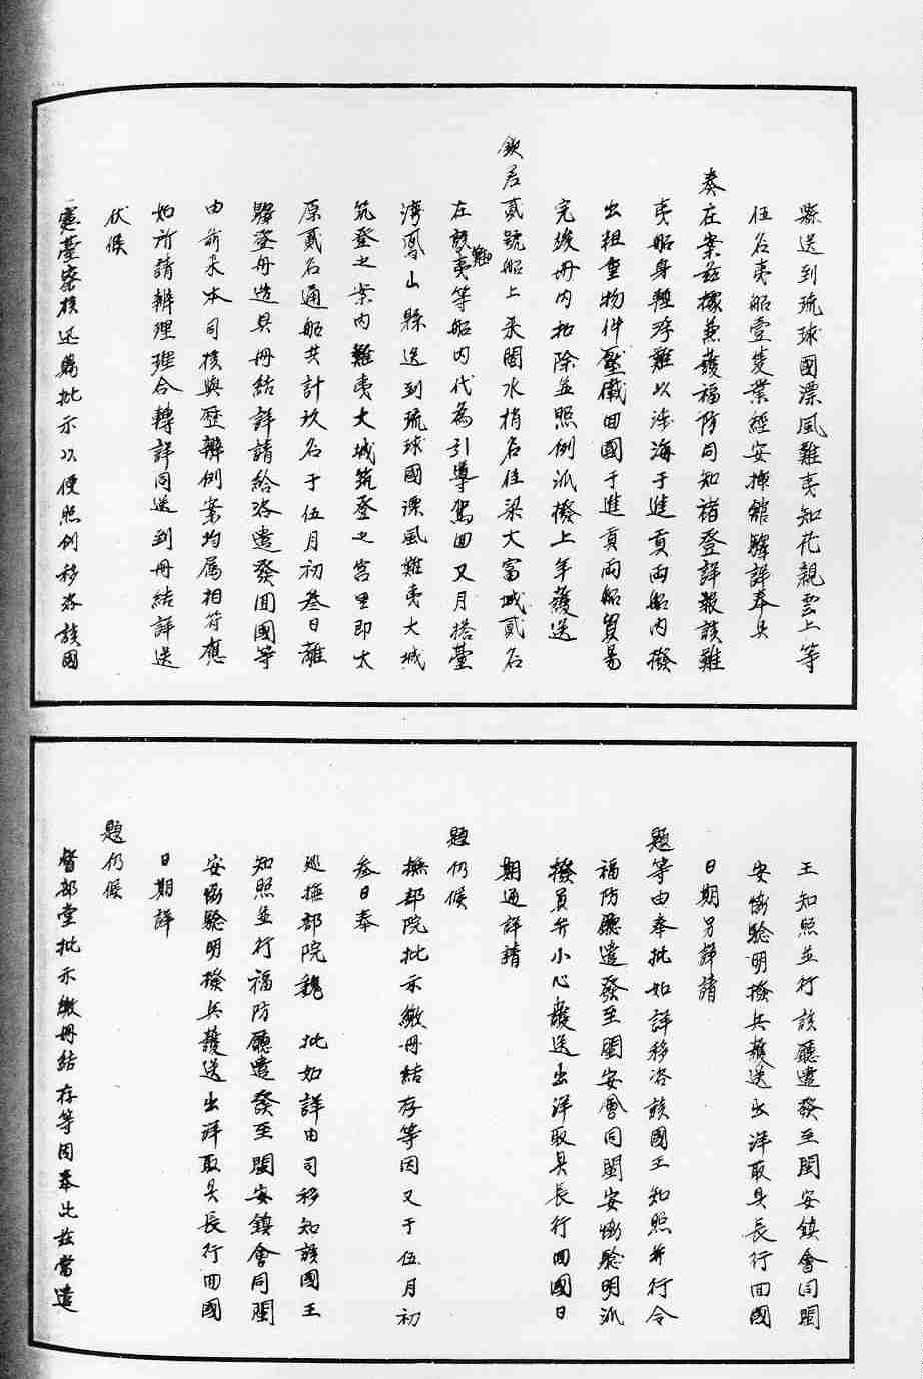 縣送到琉球國漂風難夷知花親雲上等
伍名夷船壹隻業經安揷館驛詳奉具
奏在案茲據兼護福防同知褚登詳報該難
夷船身輕浮難以涉海于進貢兩船內撥
出粗重物件壓儎回國于進貢兩船貿易
完竣冊內扣除並照例派撥上年護送
欽差貳號船上采閣水梢名佳梁大富城貳名
在該難夷等船內代為引導駕回又月搭臺
灣鳳山縣送到琉球國漂風難夷大城
筑登之案內難夷大城筑登之宮里即太
原貳名通船共計玖名于伍月初叁日離
驛登舟造具冊結詳請給咨遣發回國等
由前來本司核與歷辦例案均屬相符應
如所請辦理理合轉詳同送到冊結詳送
伏候
憲臺察核迅賜批示以便照例移咨該國
王知照並行該廳遣發至閩安鎮會同閩
安協驗明撥兵護送出洋取具長行回國
日期另詳請
題等由奉批如詳移咨該國王知照并行令
福防廳遣發至閩安會同閩安協驗明派
撥員弁小心護送出洋取具長行回國日
期通詳請
題仍候
撫部院批示繳冊結存等因又于伍月初
叁日奉
巡撫部院魏 批如詳由司移知該國王
知照並行福防廳遣發至閩安鎮會同閩
安協驗明撥兵護送出洋取具長行回國
日期詳
題仍候
督部堂批示繳冊結存等因奉此茲當遣